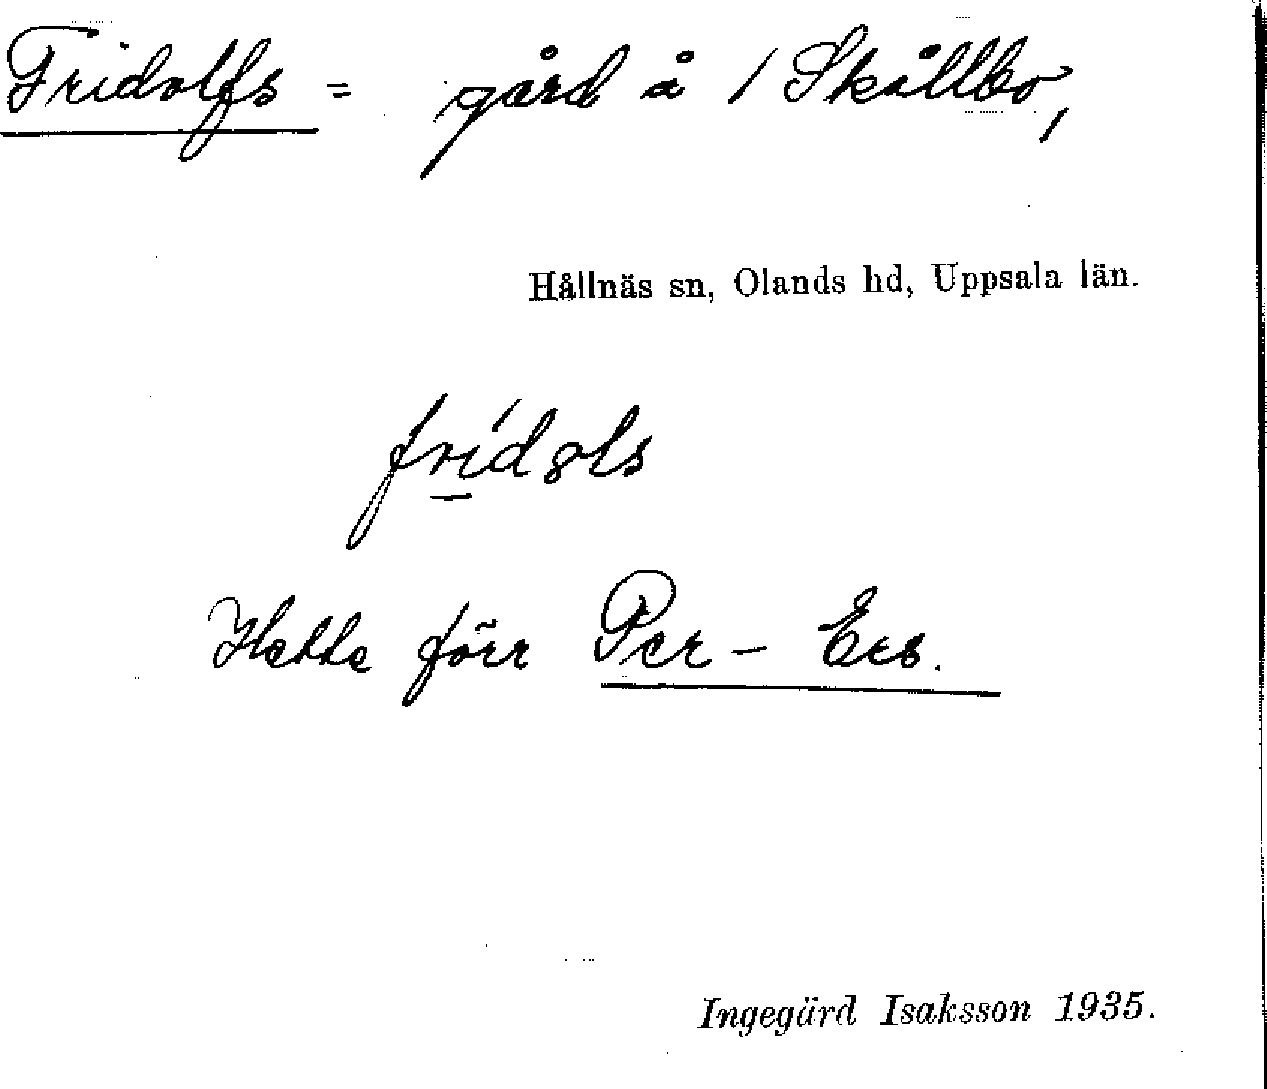 Fridolfs = gård å 1 Skållbo,
Hållnäs sn, Olands hd, Uppsala län.
fridols
Hette förr Per - Ers.
Ingegärd Isaksson 1935.